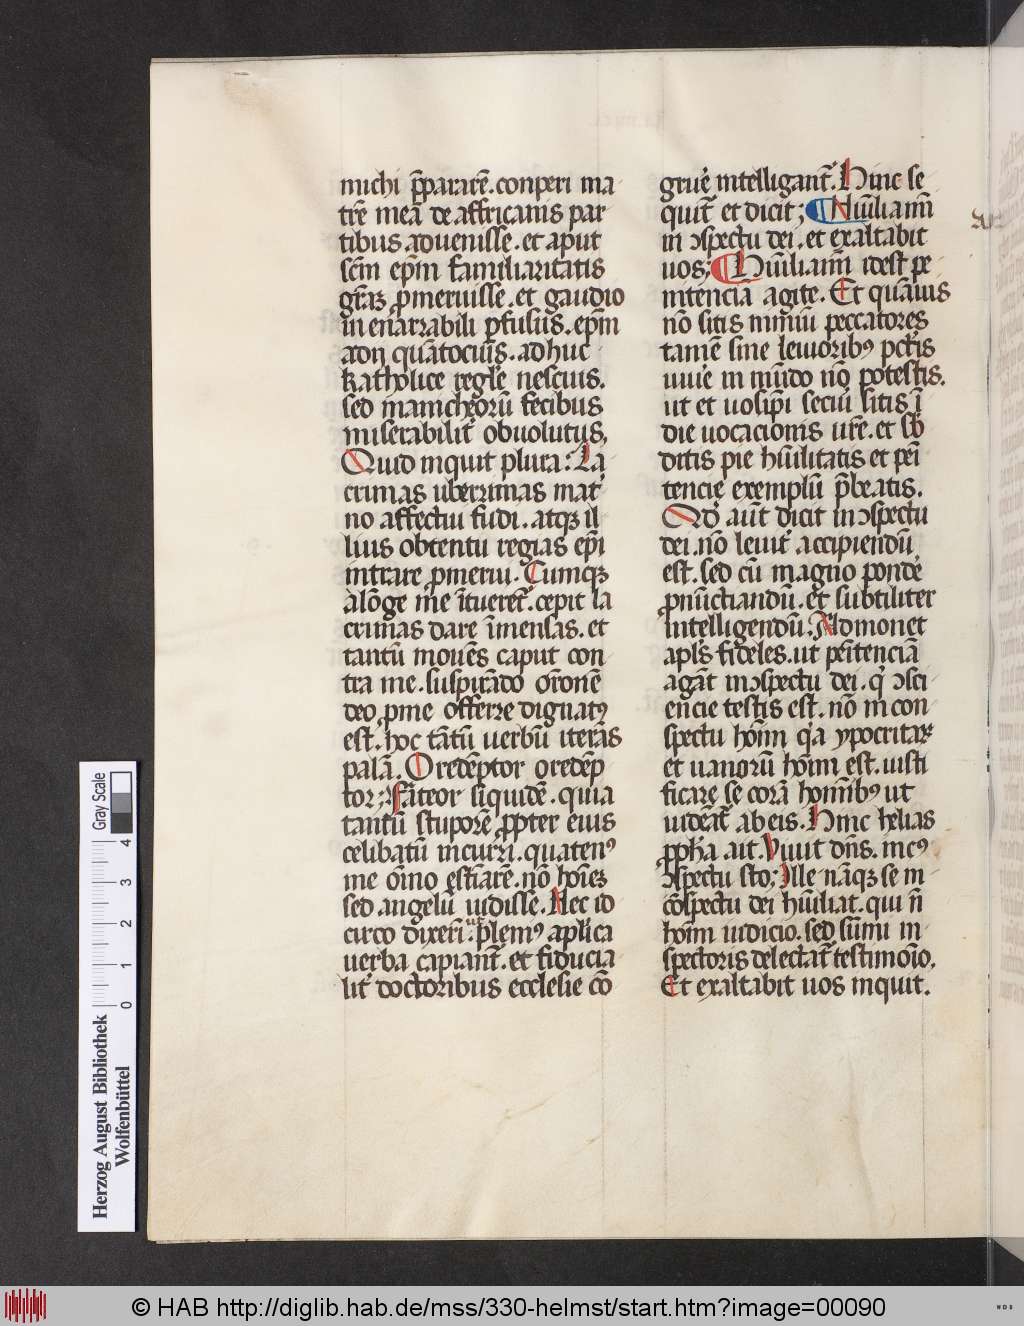 michi p̄pararē. conperi ma
trē meā de affricanis par
tibus aduenisse. et aput
sc̄m ep̄m familiaritatis
gr̄aꝫ ꝓmeruisse. et gaudio
in enarrabili ꝑfusus. ep̄m
adij quātocius. adhuc
katholice regle nescius.
sed manicheorū fecibus
miserabilit̄ obuolutus,
Quid inquit plura: La
crimas uberrimas mat̄
no affectu fudi. atqꝫ il
lius obtentu regias ep̄i
intrare ꝓmerui. Cumqꝫ
alōge me ītueret̄. cepit la
crimas dare īmensas. et
tantū mouēs caput con
tra me. suspirādo or̄onē
deo ꝓ me offerre dignatꝰ
est. hoc tātū uerbū iterās
palā. O redēptor o redēp
tor; Fateor siquidē. quia
tantū stuporē ꝓpter eius
celibatū incurri. quatenꝰ
me om̄o estīarē. nō hoīeꝫ
sed angelū uidisse. Nec id
circo dixeri. ut plemꝰ aplica
uerba capiant̄. et fiducia
lit̄ doctoribus ecclesie cō
grue intelligant̄. Hinc se
quit̄ et dicit; ¶ Hūiliamī
in ↄspectu dei. et exaltabit
uos; ¶ Hūiliamī idest pe
nitencia agite. Et quāuis
nō sitis nimiū peccatores
tamē sine leuioribꝰ pctīs
uiue in mūdo nō potestis.
ut et uosip̄i securi sitis ī
die uocacionis ur̄e. et sb̄
ditis pie hūilitatis et pēi
tencie exemplū p̄beatis.
Qd̄ aut̄ dicit in ↄspectu
dei. nō leuit̄ accipiendū
est. sed cū magno ponde
ꝓnūctiandū. et subtiliter
intelligendū. Admonet
apl̄s fideles. ut pēitenciā
agāt in ↄspectu dei. q̄ ↄsci
encie testis est. nō in con
spectu hoīm q̄a ypocritaꝝ
et uanorū hoīm est. iusti
ficare se corā hominībꝰ ut
uideāt̄ ab eis. Hinc helias
ꝓph̄a ait. Viuit dn̄s. in cꝰ
ↄspectu sto; Ille nāqꝫ se in
cōspectu dei hūiliat. qui n̄
hoīm iudicio. sed sūmi in
spectoris delectat̄ testimoīo.
Et exaltabit uos inquit.
Herzog August Bibliothek
Wolfenbüttel
0 1 2 3 4
Gray Scale
© HAB http://diglib.hab.de/mss/330-helmst/start.htm?image=00090